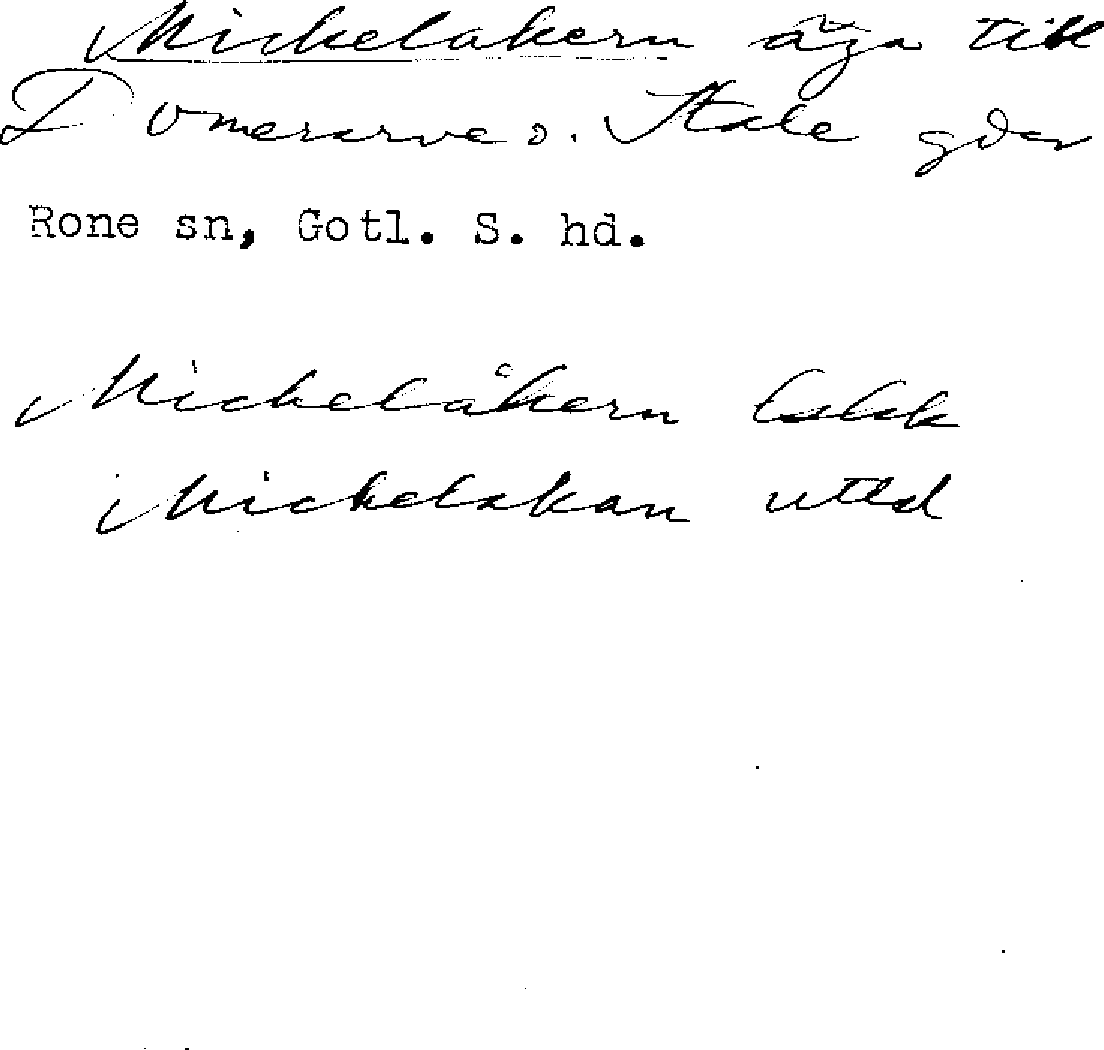 Mickelakern äga till
Domerarve o. Stale gdar
Rone sn, Gotl. S. hd.
Mickelåkern Eskk
Mickelakan utld